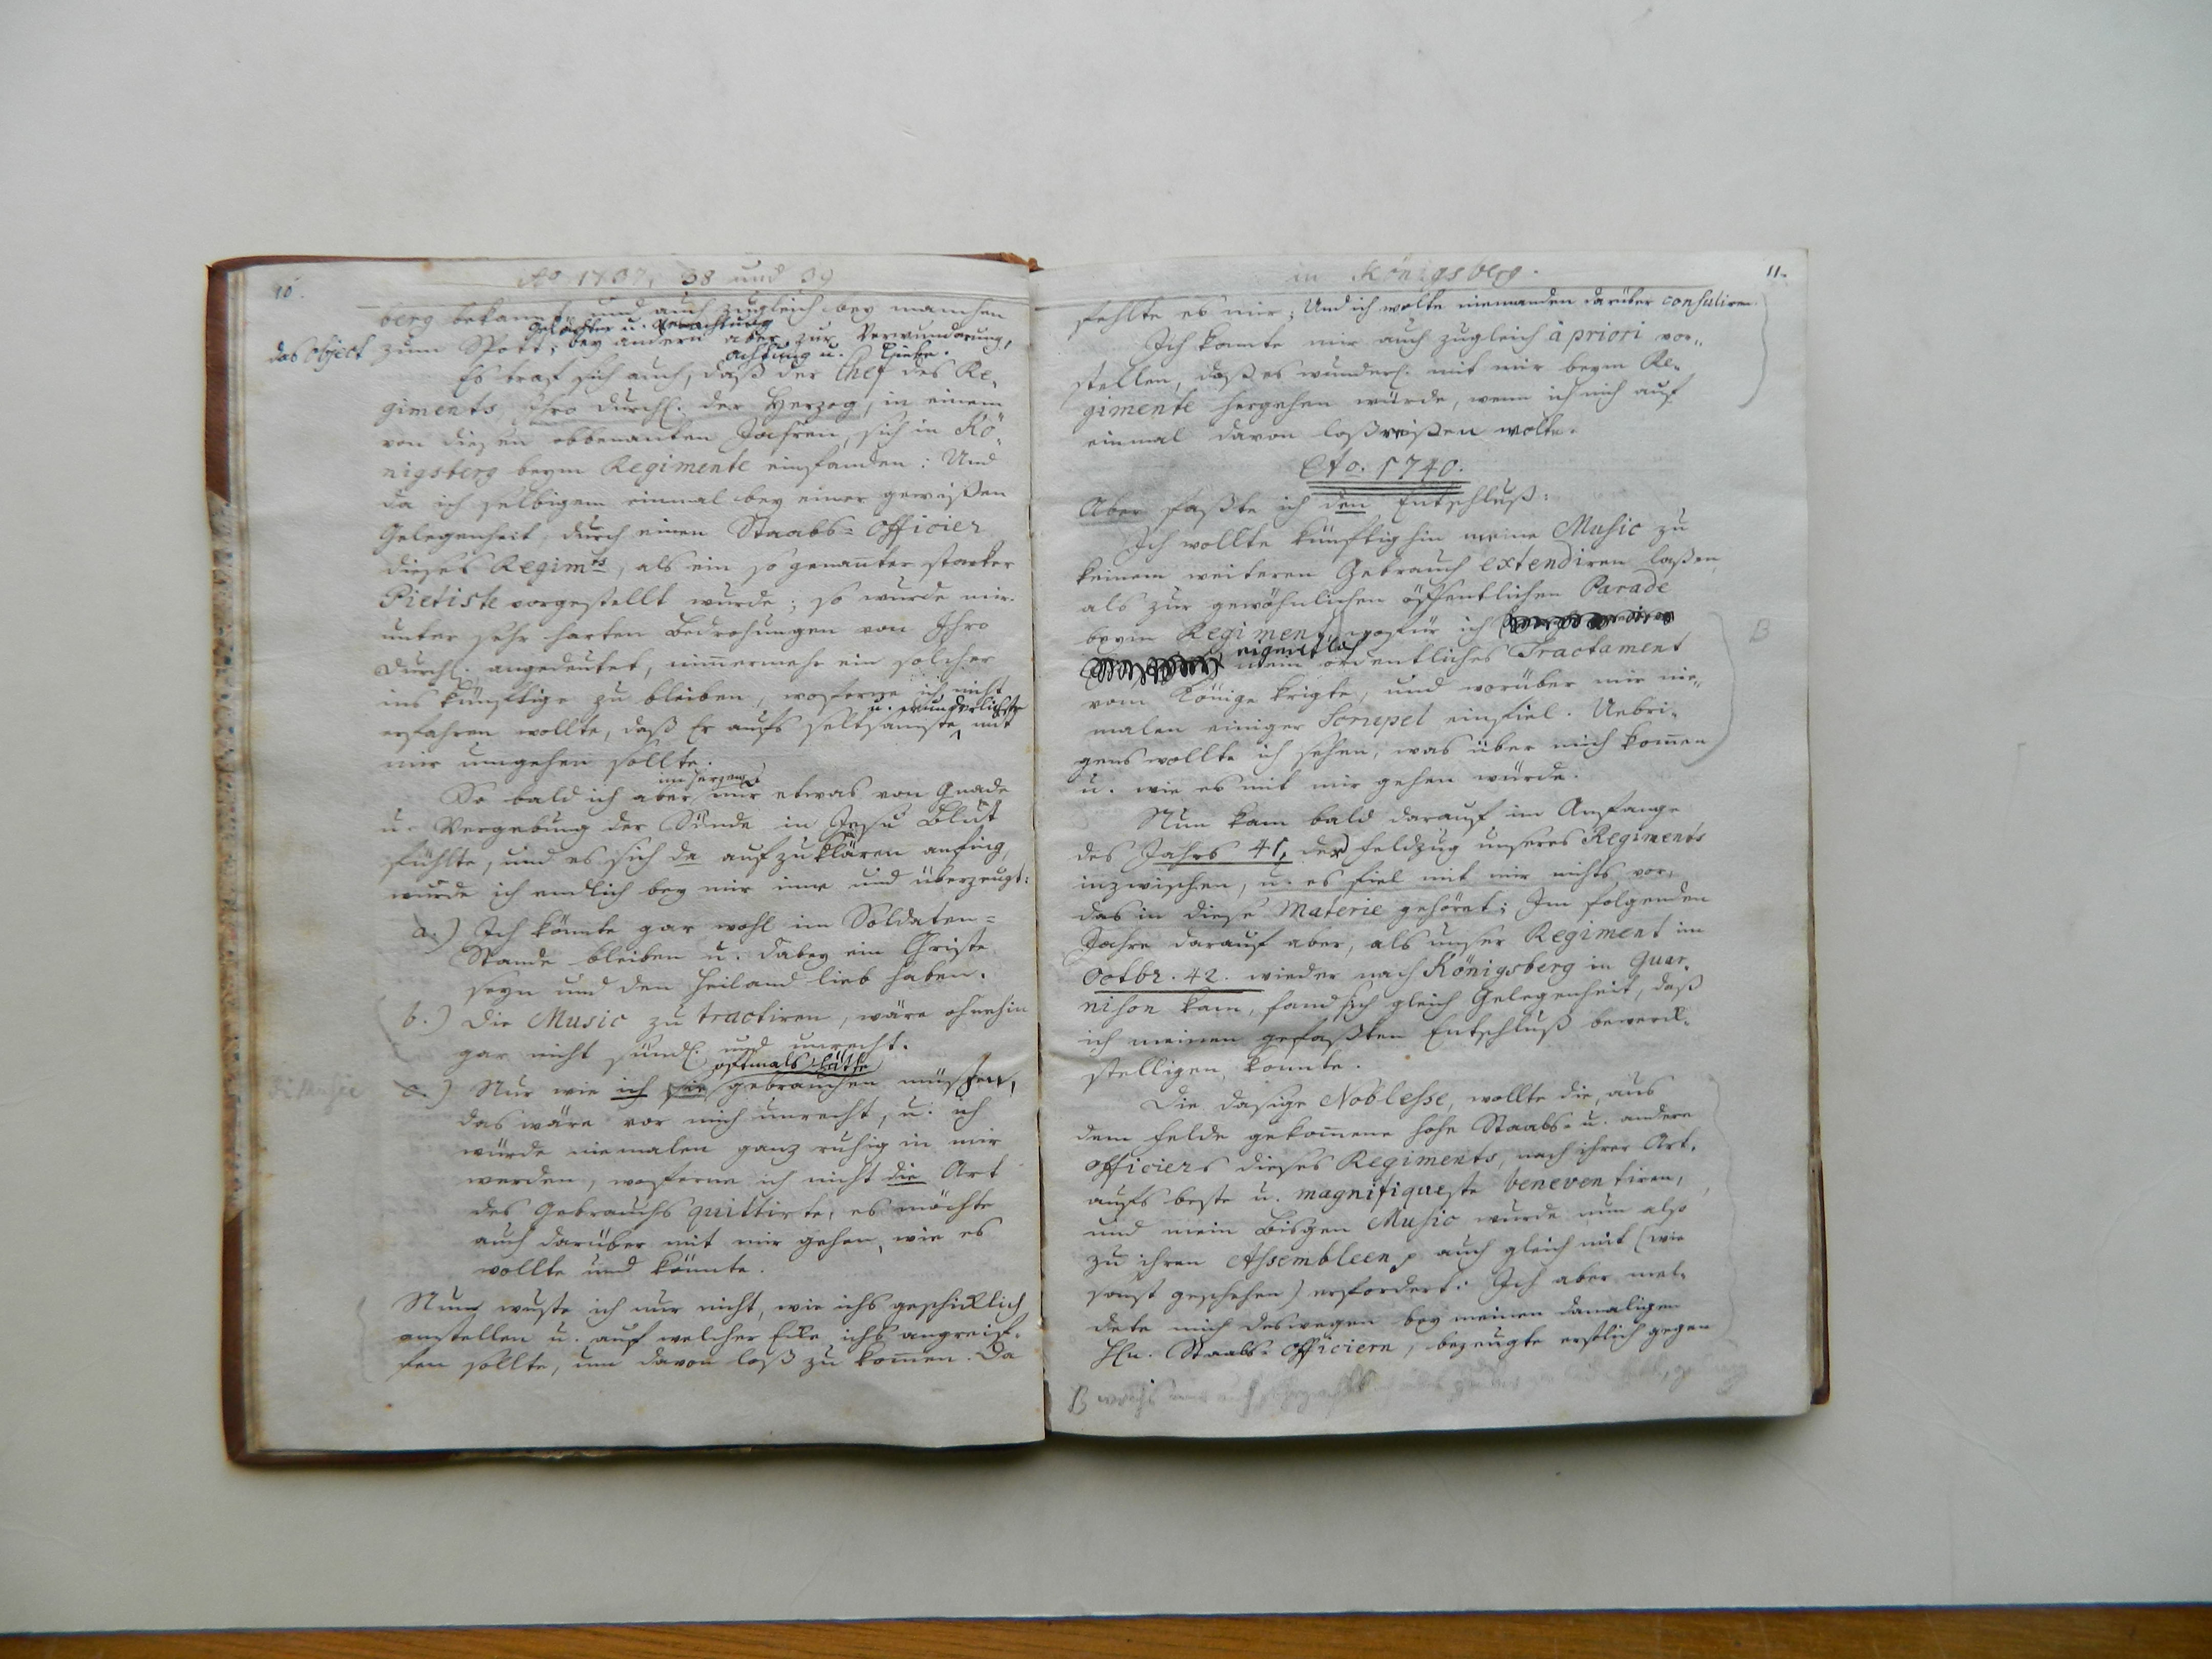 10.
Ao 1737, 38 und 39
berg bekannt, und auch zugleich bey manchen
Gelächter u. Verachtung
das Object zum Spott; bey andern aber zur Verwunderung,
Achtung u. Liebe.
Es traf sich auch, daß der Chef des Re-
giments, Ihro Durchl. der Herzog, in einem
von diesen obbenanten Jahren, sich in Kö-
nigsberg beym Regimente einfanden: Und
da ich selbigem einmal bey einer gewißen
Gelegenheit, durch einen Staabs-Officier
dieses Regimts, als ein so genannter starker
Pietiste vorgestellt wurde; so wurde mir
unter sehr harten Bedrohungen von Ihro
Durchl. angedeutet, nimmermehr ein solcher
ins künftige zu bleiben, woferne ich nicht
u. wunderlichste
erfahren wollte, daß Er aufs seltsamste mit
mir umgehen sollte.
im Herzen
So bald ich aber nur etwas von Gnade
u. Vergebung der Sünde in Jesu Blut
fühlte, und es sich da aufzuklären anfing,
wurde ich endlich bey mir inne und überzeugt:
a.) Ich könnte gar wohl im Soldaten-
Stande bleiben u. dabey ein Christe
seyn und den Heiland lieb haben.
b.) Die Music zu tractiren, wäre ohnehin
gar nicht sündl. und unrecht.
oftmals hätte
c.) Nur wie ich sie gebrauchen müßen,
das wäre vor mich unrecht, u. ich
würde niemalen ganz ruhig in mir
werden, woferne ich nicht die Art
des Gebrauchs quittirte, es möchte
auch darüber mit mir gehen, wie es
wollte und könnte.
Nun wuste ich nur nicht, wie ichs geschicklich
anstellen u. auf welcher Ecke ichs angreif-
fen sollte, um davon loß zu kommen. Da
in Königsberg.
11.
fehlte es mir; Und ich wolte niemanden darüber consuliren.
Ich konte mir auch zugleich à priori vor-
stellen, daß es wunderl. mit mir beym Re-
gimente hergehen würde, wenn ich mich auf
einmal davon loßreißen wolte.
Ao. 1740.
Aber faßte ich den Entschluß:
Ich wollte künftighin meine Music zu
keinem weiteren Gebrauch extendiren laßen,
als zur gewöhnlichen öffentlichen Parade
beym Regiment, wofür ich
eigentlich
mein ordentliches Tractament
vom Könige kriegte, und worüber mir nie-
malen einiger Scrupel einfiel. Uebri-
gens wollte ich sehen, was über mich kommen
u. wie es mit mir gehen würde.
B
Nun kam bald darauf im Anfange
des Jahrs 41, der Feldzug unseres Regiments
inzwischen, u. es fiel mit mir nichts vor,
das in diese Materie gehöret; Im folgenden
Jahre darauf aber, als unser Regiment im
Octbr. 42. wieder nach Königsberg in Guar-
nison kam, fand sich gleich Gelegenheit, daß
ich meinen gefaßten Entschluß bewerck-
stelligen konnte.
Die dasige Noblesse, wollte die, aus
dem Felde gekommene hohe Staabs- u. andere
Officiers dieses Regiments, nach ihrer Art,
aufs beste u. magnifiqueste beneventiren,
und mein Bisgen Music wurde nun also
zu ihren Assembleen auch gleich mit (wie
sonst geschehen) erfordert: Ich aber mel-
dete mich deswegen bey meinen damaligen
Hln. Staabs-Officiern, bezeugte erstlich gegen
B